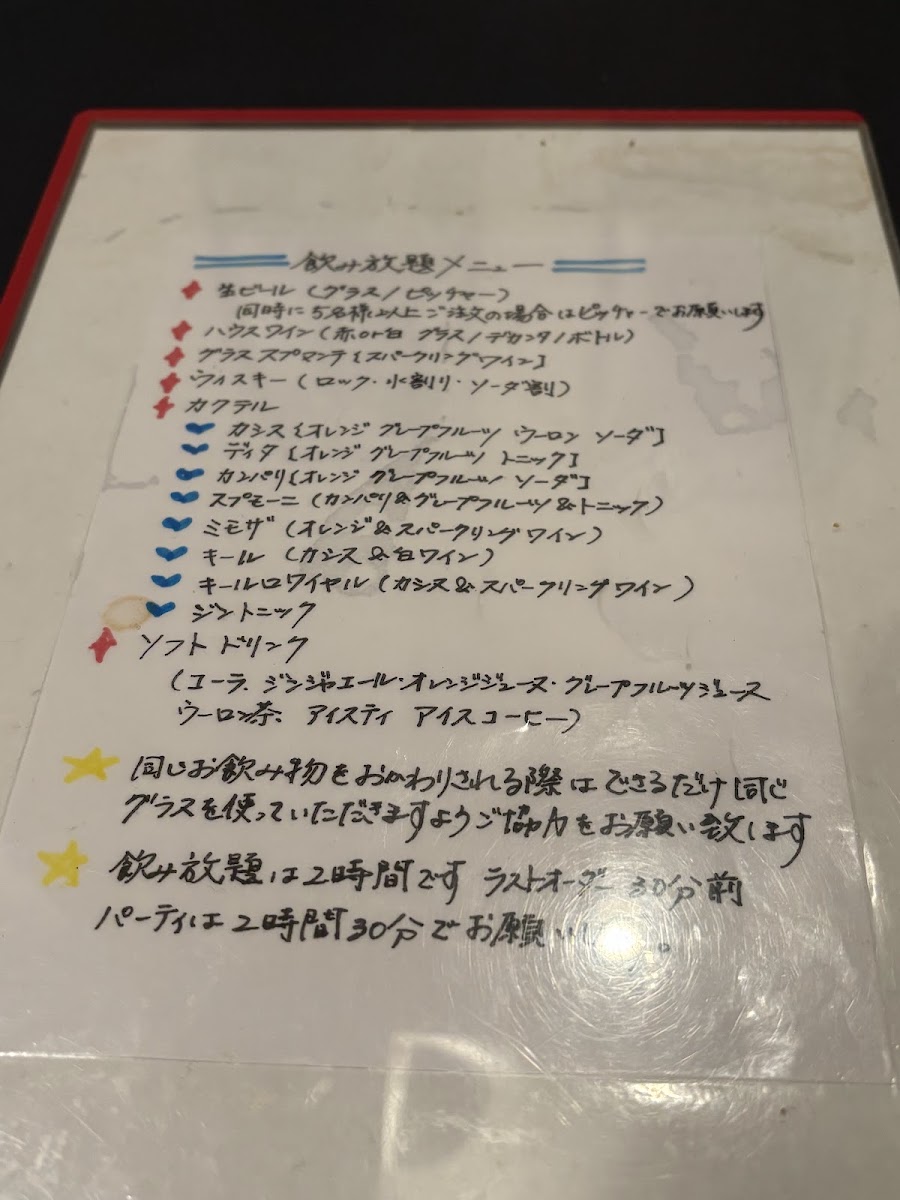 飲み放題メニュー
生ビール (グラス / ピッチャー)
同時に5名様以上ご注文の場合はピッチャーでお願いします
ハウスワイン (赤or白 グラス / デカンタ / ボトル)
グラススプマンテ [スパークリングワイン]
ウィスキー (ロック・水割り・ソーダ割)
カクテル
カシス [オレンジ グレープフルーツ ウーロン ソーダ]
ディタ [オレンジ グレープフルーツ トニック]
カンパリ [オレンジ グレープフルーツ ソーダ]
スプモーニ (カンパリ&グレープフルーツ&トニック)
ミモザ (オレンジ&スパークリングワイン)
キール (カシス&白ワイン)
キールロワイヤル (カシス&スパークリングワイン)
ジントニック
ソフトドリンク
(コーラ、ジンジャエール・オレンジジュース・グレープフルーツジュース
ウーロン茶、アイスティ アイスコーヒー)
同じお飲み物をおかわりされる際はできるだけ同じ
グラスを使っていただきますようご協力をお願い致します
飲み放題は2時間です ラストオーダー 30分前
パーティは2時間30分でお願い